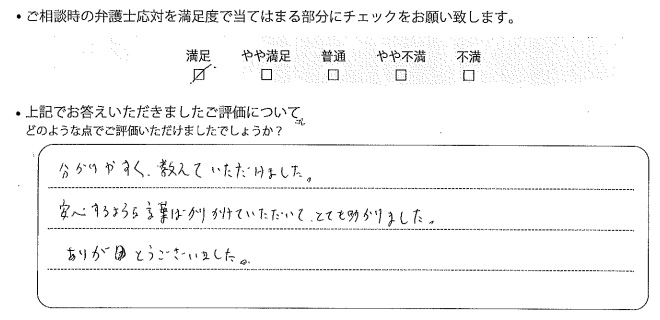 ・ご相談時の弁護士応対を満足度で当てはまる部分にチェックをお願い致します。
満足 やや満足 普通 やや不満 不満
・上記でお答えいただきましたご評価について
どのような点でご評価いただけましたでしょうか？
分かりやすく、教えていただけました。
安心するような言葉ばかりかけていただいて、とても助かりました。
ありがとうございました。